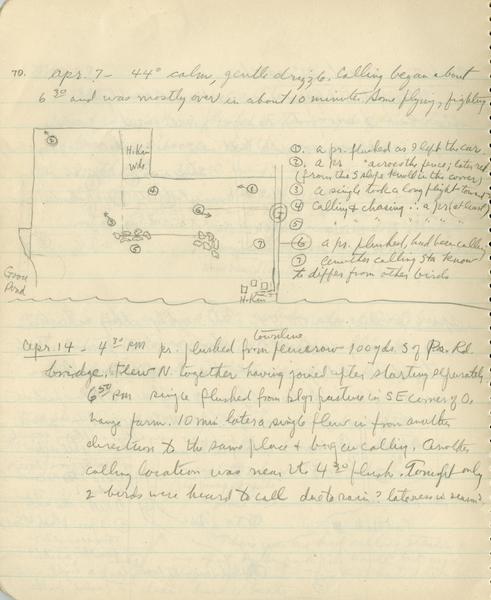 70. Apr. 7 - 44° calm, gentle drizzle. Calling began about
6 30 and was mostly over in about 10 minutes. Some flying, fighting
H. Kin
Wds
① a pr. flushed as I left the car.
② a pr " across the fence; later red
(from the S slope knoll in the corner)
③ a single took a long flight toward
④ calling & chasing ∴ a pr (at least)
⑤ " " " " "
⑥ a pr. flushed, had been calling
⑦ another calling sta know
to differ from other birds
Goose
Pond
H. Kin
Apr. 14 - 4 30 PM pr. flushed from fencerow 100 yds. S of Rd.
townline
bridge, flew N. together having joined after starting separately
6 50 PM single flushed from plgd pasture in SE corner of
farm. 10 min later a single flew in from another
direction to the same place & began calling. Another
calling location was near the 4 30 flush. Tonight only
2 birds were heard to call due to rain? lateness in season?